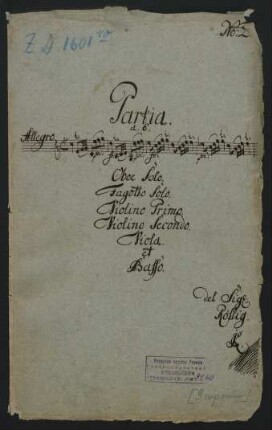 Z D 1601
No: 2
Partia.
a. 6.
Allegro.
Oboe Solo.
Fagotto Solo.
Violino Primo.
Violino Secondo.
Viola.
et
Basso.
del Sigr
Röllig.